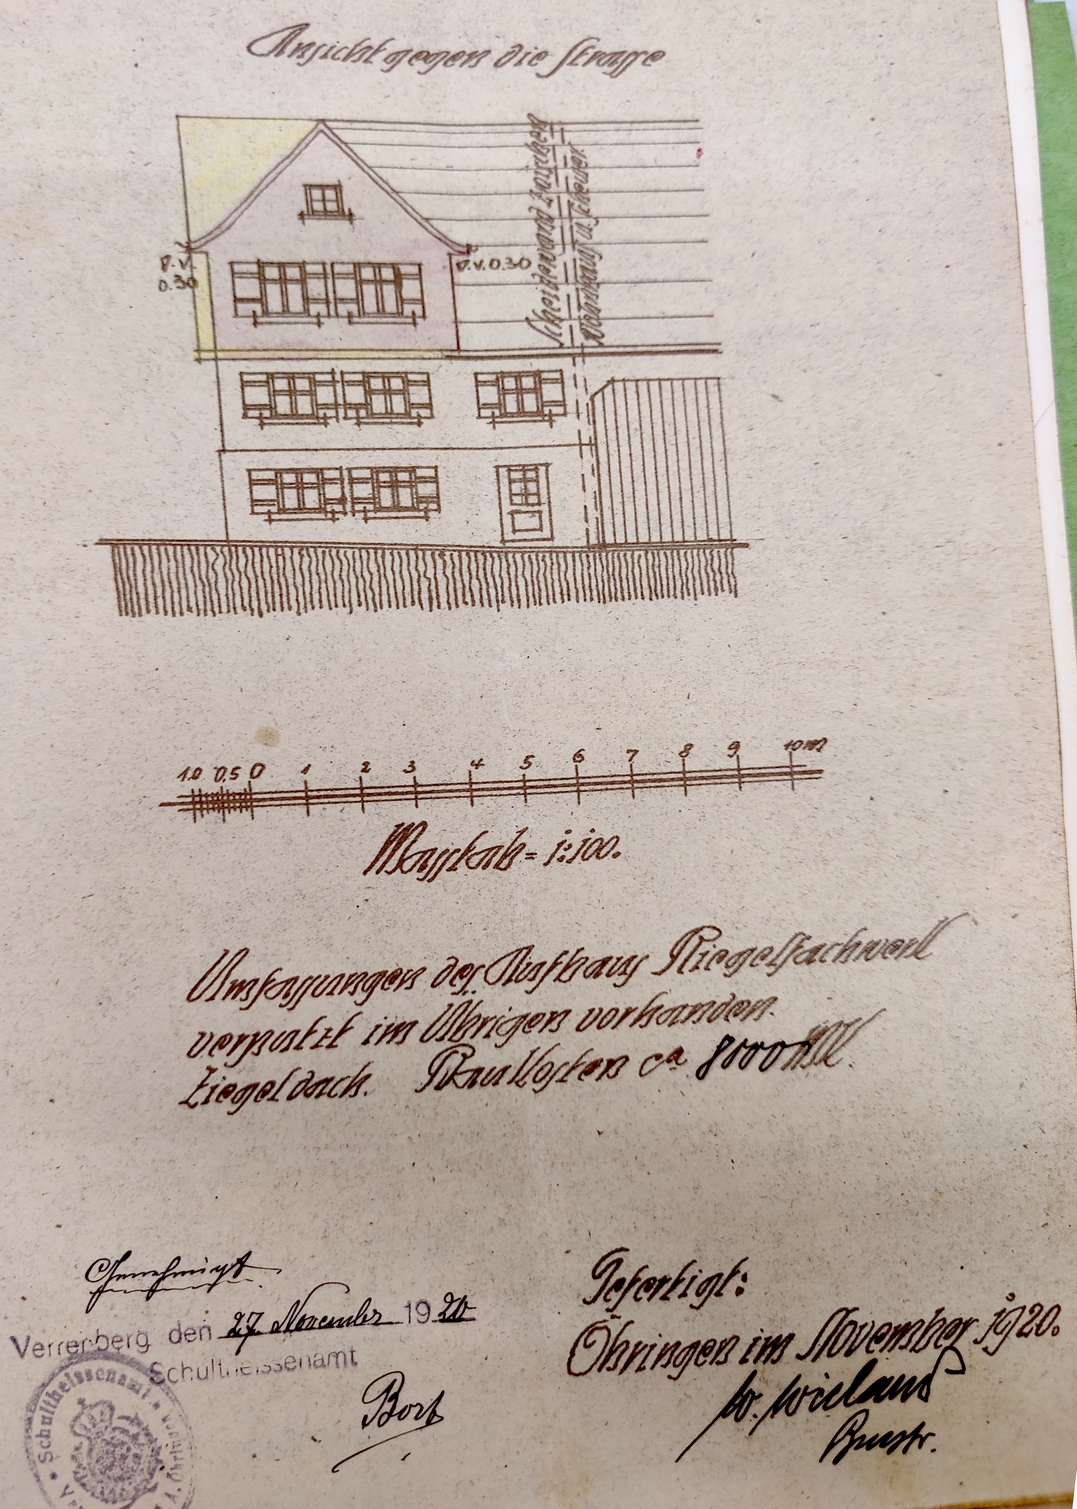 Ansicht gegen die Strasse
Scheidewand zwischen
Wohnhaus u. Scheuer.
D.V.
0.30
D.V. 0.30
1.0 0,5 0 1 2 3 4 5 6 7 8 9 10 m
Masstab = 1:100.
Umfassungen des Aufbaus Riegelfachwerk
verputzt im Übrigen vorhanden.
Ziegeldach. Baukosten ca 8000 Mk.
Genehmigt
Verrenberg den 27. November 1920
Schultheissenamt
Bort
Schultheissenamt
Gefertigt:
Öhringen im November 1920.
W. Wieland